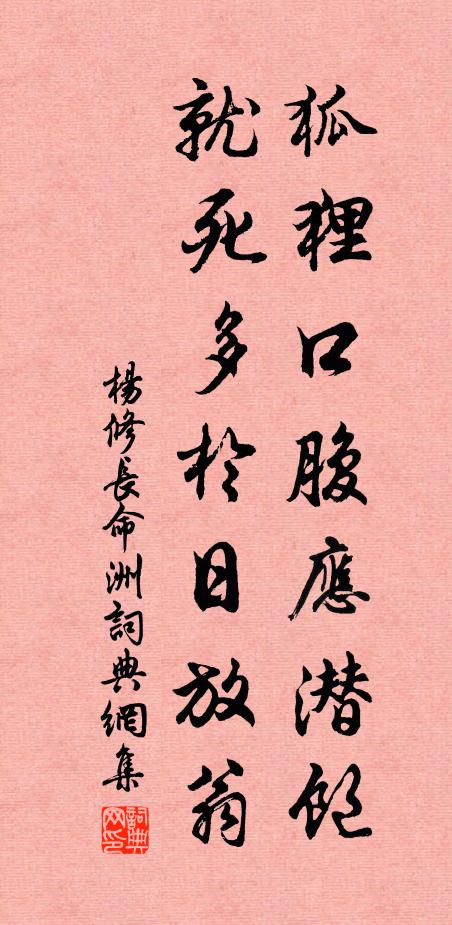 狐狸口腹應潜飽
就死多於日放翁
楊修長命洲詞典網集
詞典
网印